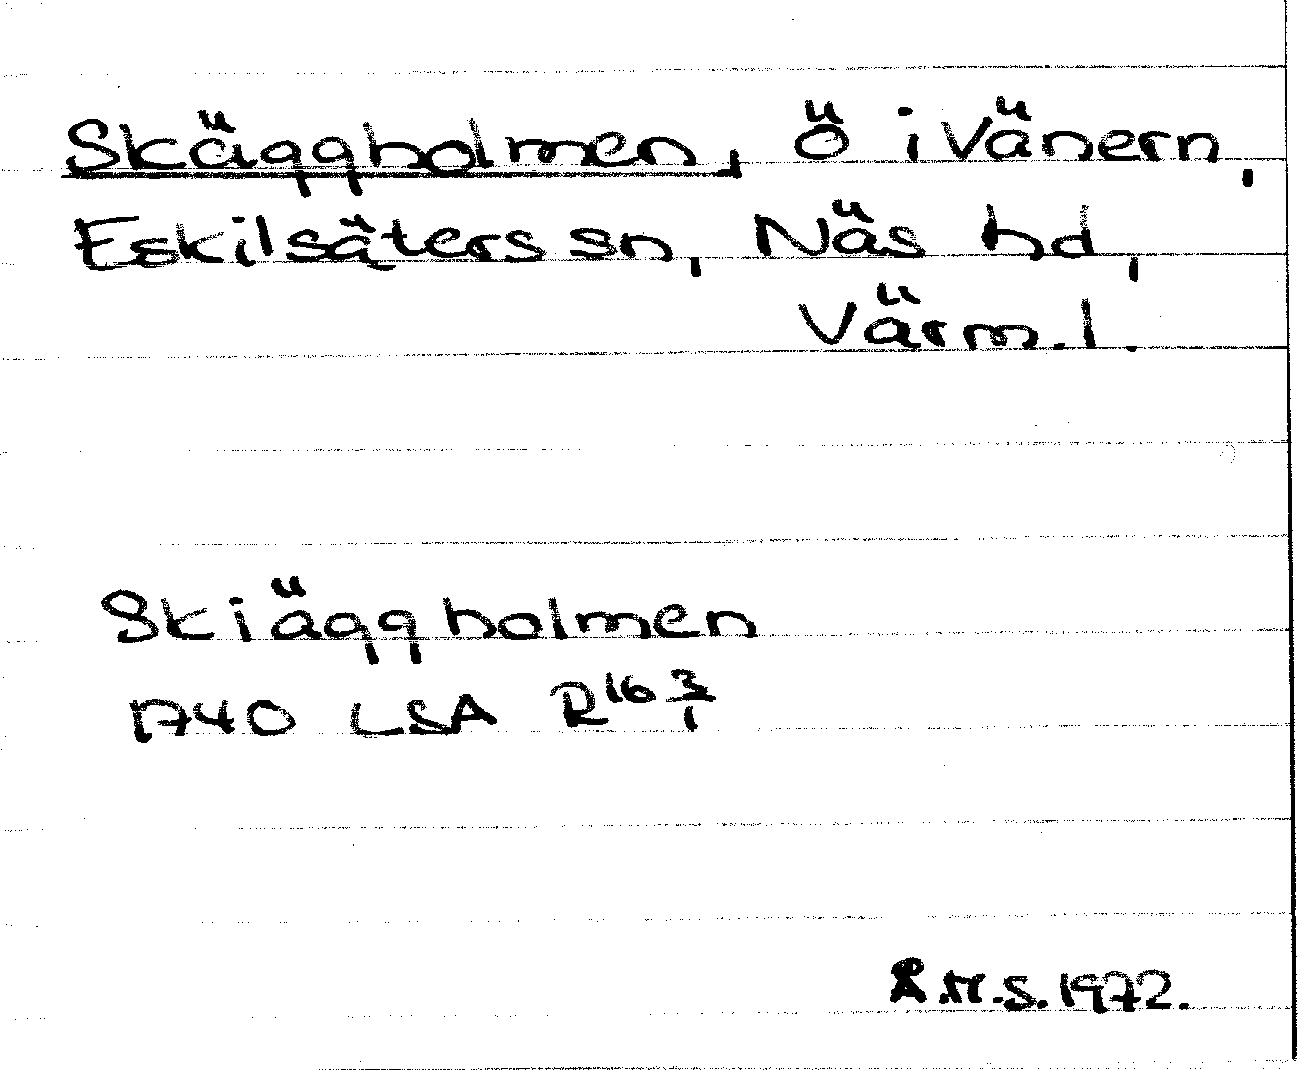 Skäggholmen, Ö i Vänern,
Eskilsäters sn, Näs hd,
Värm. l.
Skiäggholmen
1740 LSA R16 3/1
Å.H.S. 1972.